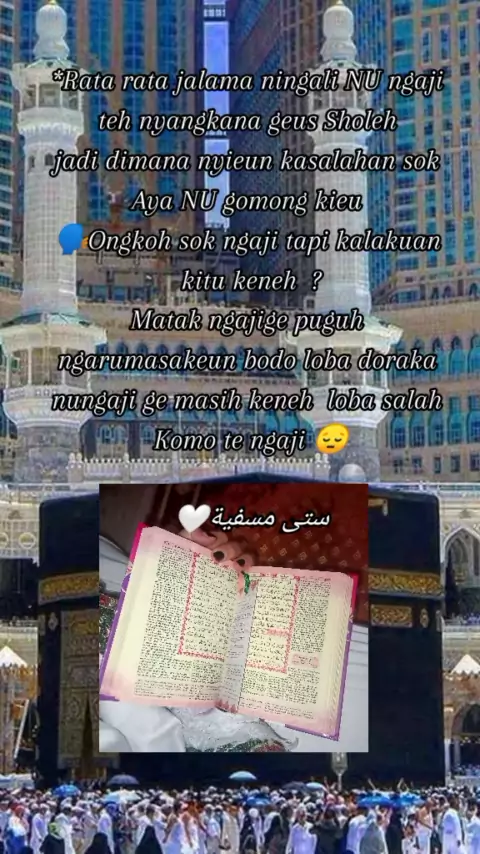 *Rata rata jalama ningali NU ngaji
teh nyangkana geus Sholeh
jadi dimana nyieun kasalahan sok
Aya NU gomong kieu
🗣Ongkoh sok ngaji tapi kalakuan
kitu keneh ?
Matak ngajige puguh
ngarumasakeun bodo loba doraka
nungaji ge masih keneh loba salah
Komo te ngaji 😔
ستى مسفية🤍